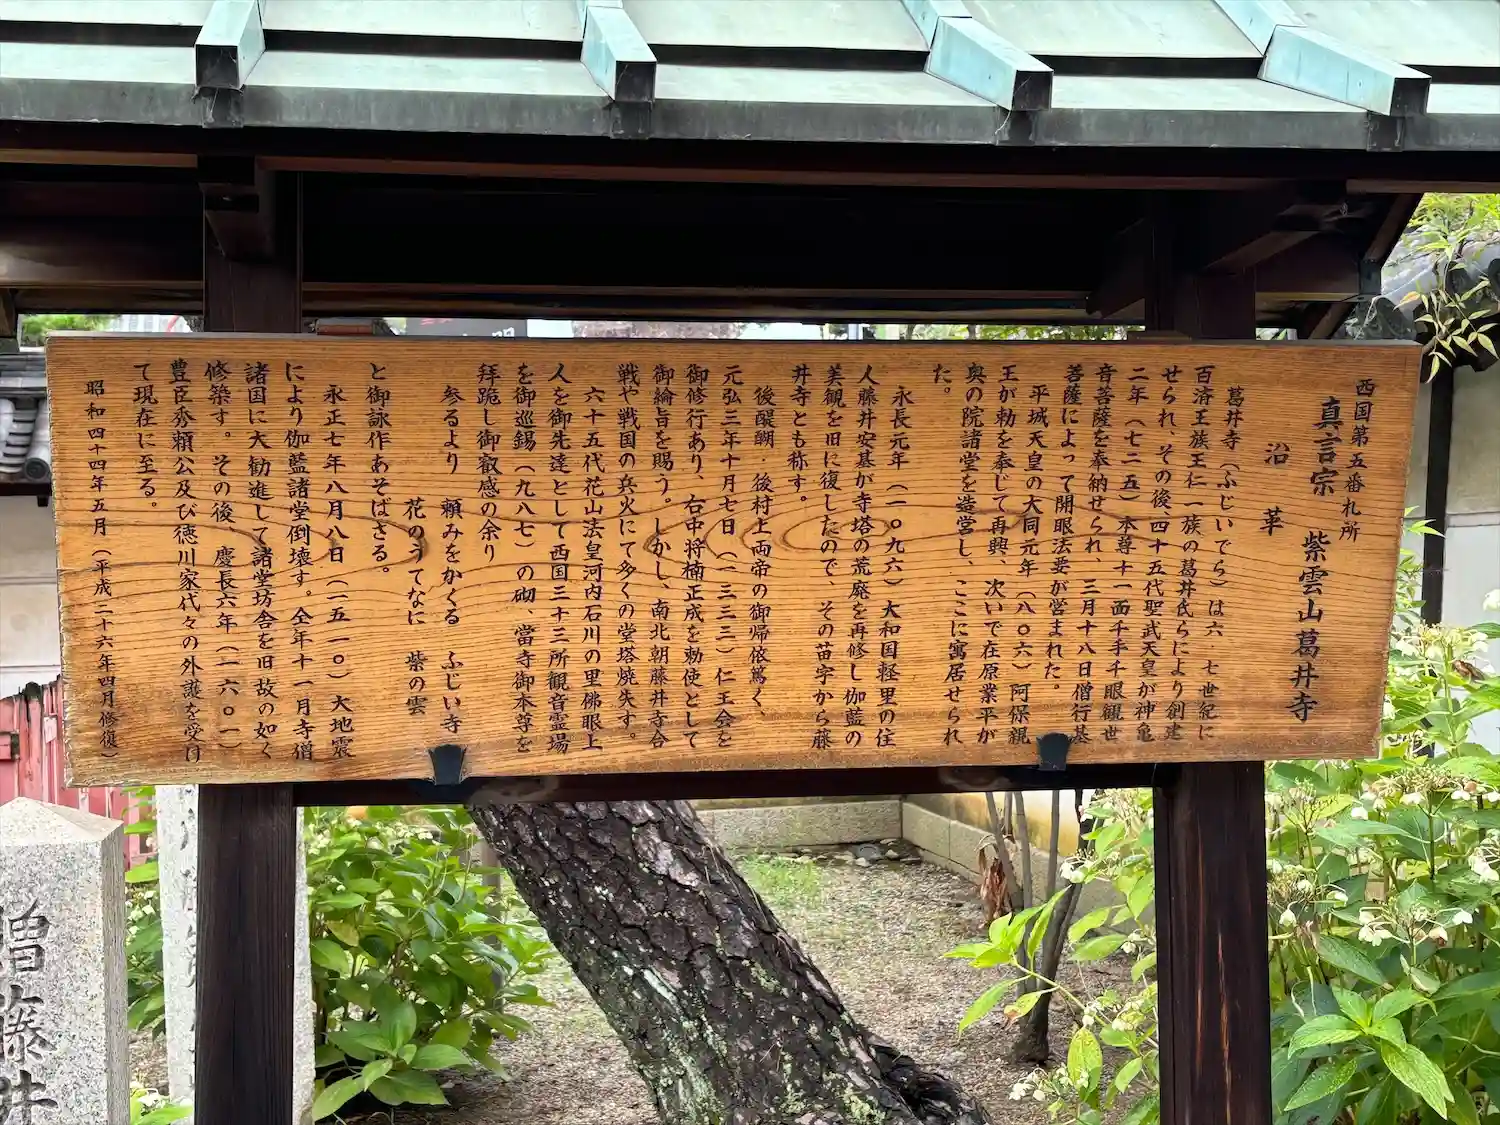 西国第五番札所
真言宗　紫雲山葛井寺
沿革
葛井寺（ふじいでら）は六・七世紀に
百済王族王仁一族の葛井氏らにより創建
せられ、その後、四十五代聖武天皇が神亀
二年（七二五）本尊十一面千手千眼観世
音菩薩を奉納せられ、三月十八日僧行基
菩薩によって開眼法要が営まれた。
平城天皇の大同元年（八〇六）阿保親
王が勅を奉じて再興、次いで在原業平が
奥の院諸堂を造営し、ここに寓居せられ
た。
永長元年（一〇九六）大和国軽里の住
人藤井安基が寺塔の荒廃を再修し伽藍の
美観を旧に復したので、その苗字から藤
井寺とも称す。
後醍醐・後村上両帝の御帰依篤く、
元弘三年十月七日（一三三三）仁王会を
御修行あり、右中将楠正成を勅使として
御綸旨を賜う。しかし、南北朝藤井寺合
戦や戦国の兵火にて多くの堂塔焼失す。
六十五代花山法皇河内石川の里佛眼上
人を御先達として西国三十三所観音霊場
を御巡錫（九八七）の砌、當寺御本尊を
拜跪し御叡感の余り
参るより　頼みをかくる　ふじい寺
花のうてなに　紫の雲
と御詠作あそばさる。
永正七年八月八日（一五一〇）大地震
により伽藍諸堂倒壊す。仝年十一月寺僧
諸国に大勧進して諸堂坊舎を旧故の如く
修築す。その後、慶長六年（一六〇一）
豊臣秀頼公及び徳川家代々の外護を受け
て現在に至る。
昭和四十四年五月（平成二十六年四月修復）
増藤井